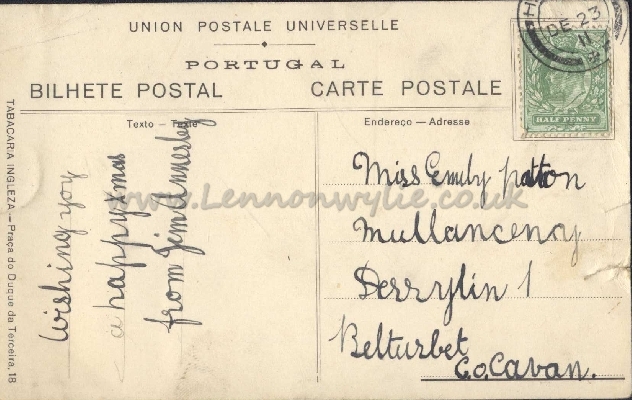 UNION POSTALE UNIVERSELLE
PORTUGAL
BILHETE POSTAL CARTE POSTALE
Texto — Texte
Endereço — Adresse
TABACARIA INGLEZA. — Praça do Duque da Terceira, 18
Wishing you
a happy xmas
from Jim Annesley
Miss Emily Patton
Mullanceny
Derrylin 1
Belturbet
Co. Cavan.
HALF PENNY
DE 23
11
www.Lennonwylie.co.uk